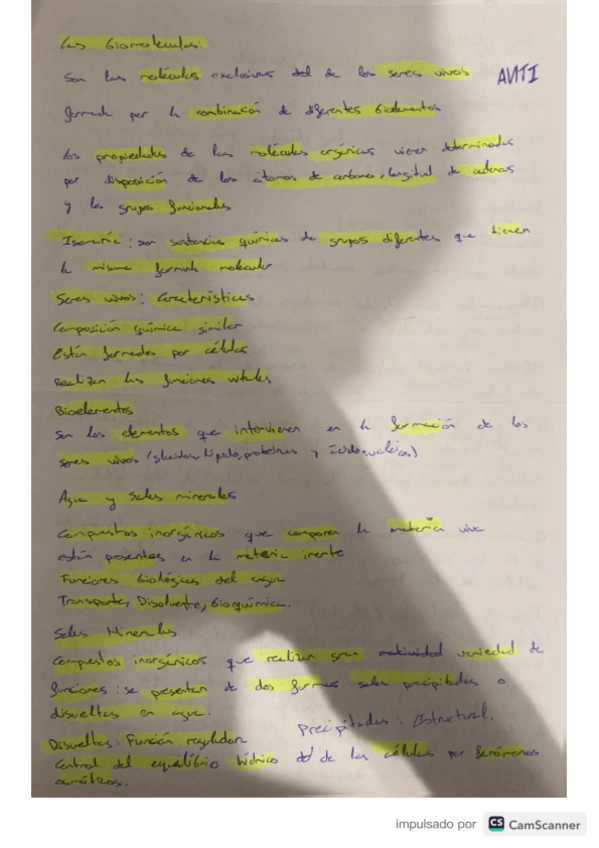 Las Biomoleculas:
Son las moléculas exclusivas del de los seres vivos
ANTI
formada por la combinación de diferentes bioelementos
Las propiedades de las moléculas orgánicas vienen determinadas
por disposición de los átomos de carbono, longitud de cadenas
y los grupos funcionales
Isomería: son sustancias químicas de grupos diferentes que tienen
la misma formula molecular
Seres vivos: Características
Composición química similar
Están formados por células
Realizan las funciones vitales
Bioelementos
Son los elementos que intervienen en la formación de los
seres vivos (glucidos, lípidos, proteínas y Ácidos nucleicos)
Agua y sales minerales
Compuestos inorgánicos que componen la materia viva
están presentes en la materia inerte
Funciones biológicas del agua
Transporte, Disolvente, bioquímica.
Sales Minerales
Compuestos inorgánicos que realizan gran variedad de
funciones: se presentan de dos formas sales precipitadas o
disueltas en agua.
Precipitadas: Estructural.
Disueltas: Función reguladora
Control del equilibrio hídrico de las células por fenómenos
osmóticos.
impulsado por CS CamScanner